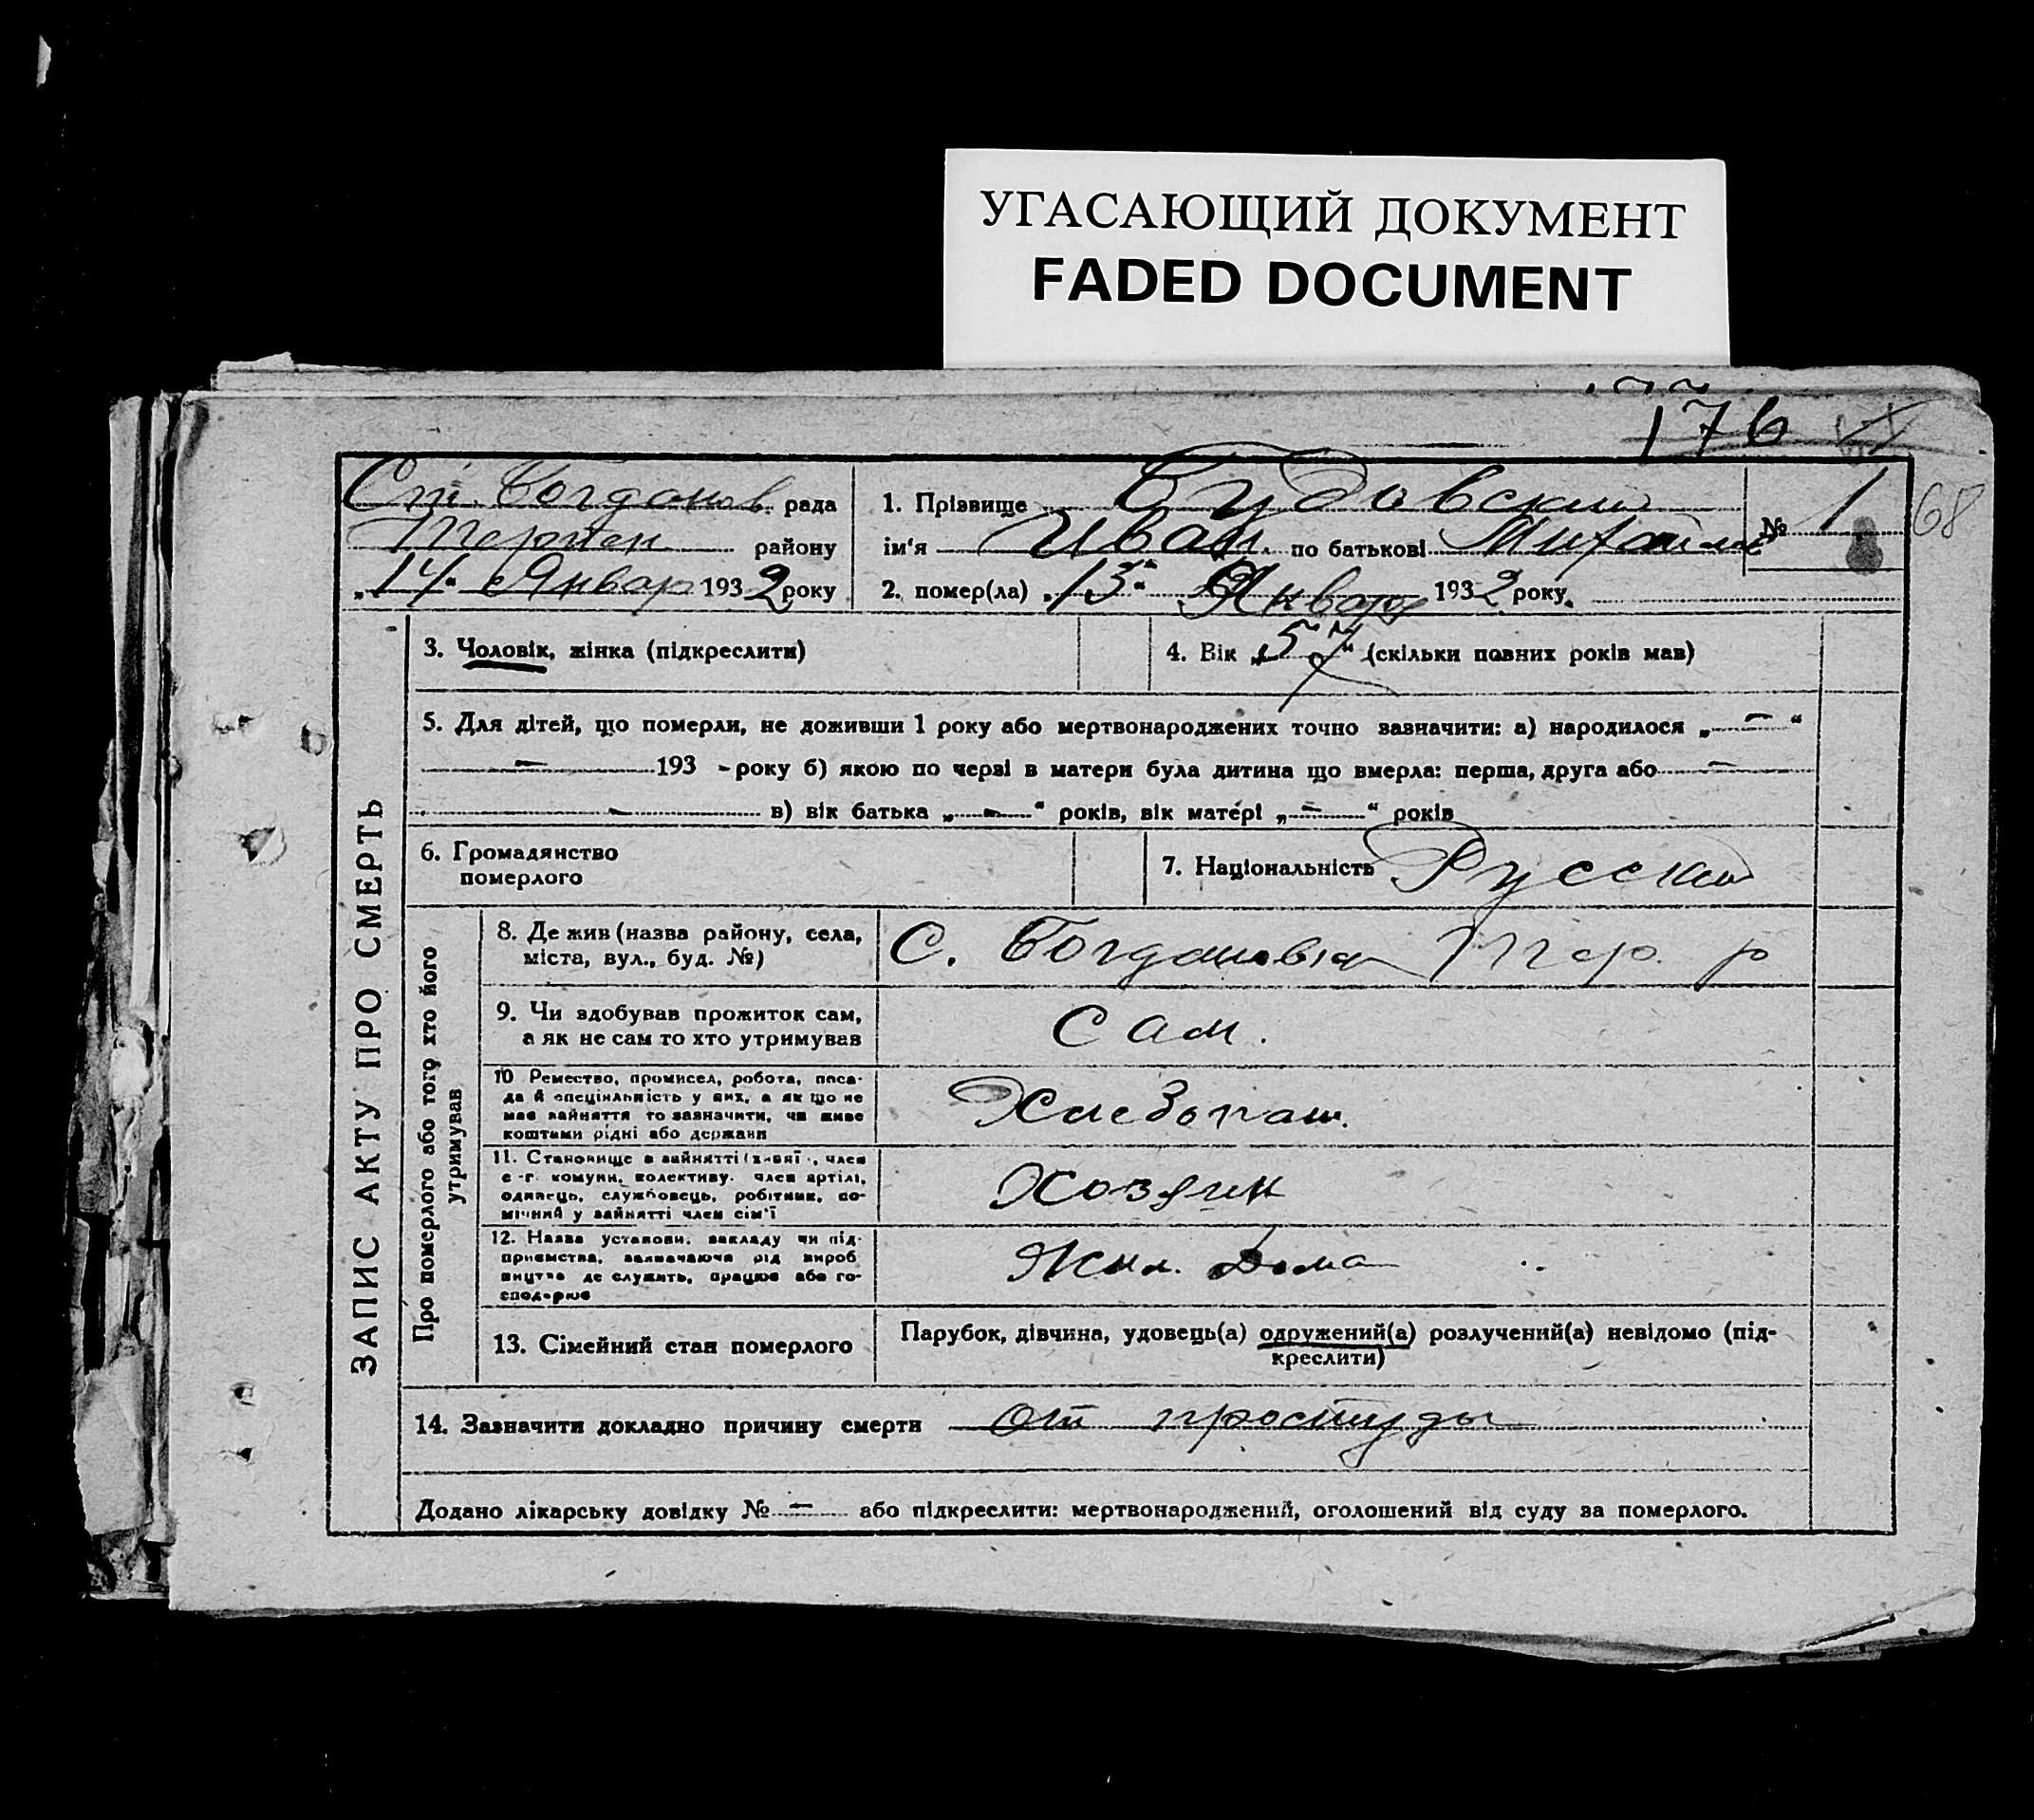 УГАСАЮЩИЙ ДОКУМЕНТ
FADED DOCUMENT
176
68
Богданов. рада
району
„14“ Январ 1932 року
1. Прізвище Будовский
ім'я Иван. по батькові Михайлов
№ 1
2. помер(ла) „13“ Января 1932 року.
ЗАПИС АКТУ ПРО СМЕРТЬ
3. Чоловік, жінка (підкреслити)
4. Вік „57“ (скільки повних років мав)
5. Для дітей, що померли, не доживши 1 року або мертвонароджених точно зазначити: а) народилося „ — “
— 193 - року б) якою по черзі в матери була дитина що вмерла: перша, друга або —
— в) вік батька „ — “ років, вік матері „ — “ років
6. Громадянство
померлого
7. Національність Русский
Про померлого або того хто його
утримував
8. Де жив (назва району, села,
міста, вул., буд. №)
С. Богдановка Тер. р
9. Чи здобував прожиток сам,
а як не сам то хто утримував
Сам.
10 Ремество, промисел, робота, поса-
да й спеціяльність у них, а як що не
має зайняття то зазначити, чи живе
коштами рідні або держави
Хлебопаш.
11. Становище в зайнятті , член
с.-г. комуни, колективу, член артілі,
одинець, службовець, робітник, по-
мічний у зайнятті член сім'ї
Хозяин
12. Назва установи, закладу чи під-
приємства, зазначаючи рід вироб
ництва де служить, працює або го-
сподарює
Жил. Дома
13. Сімейний стан померлого
Парубок, дівчина, удовець(а) одружений(а) розлучений(а) невідомо (під-
креслити)
14. Зазначити докладно причину смерти от простуды
Додано лікарську довідку № — або підкреслити: мертвонароджений, оголошений від суду за померлого.